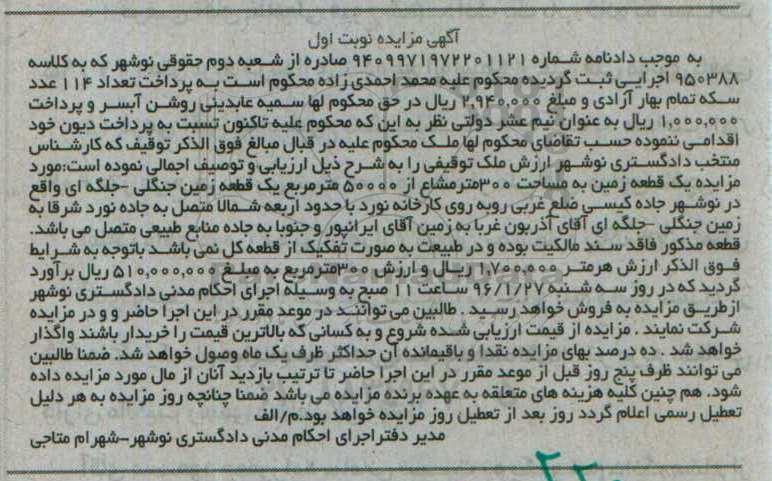 آگهی مزایده نوبت اول
به موجب دادنامه شماره ۹۴۰۹۹۷۱۹۷۲۲۰۱۱۲۱ صادره از شعبه دوم حقوقی نوشهر که به کلاسه
۹۵۰۳۸۸ اجرایی ثبت گردیده محکوم علیه محمد احمدی زاده محکوم است به پرداخت تعداد ۱۱۴ عدد
سکه تمام بهار آزادی و مبلغ ۲,۹۴۰,۰۰۰ ریال در حق محکوم لها سمیه عابدینی روشن آبسر و پرداخت
۱,۰۰۰,۰۰۰ ریال به عنوان نیم عشر دولتی نظر به این که محکوم علیه تاکنون تسبت به پرداخت دیون خود
اقدامی ننموده حسب تقاضای محکوم لها ملک محکوم علیه در قبال مبالغ فوق الذکر توقیف که کارشناس
منتخب دادگستری نوشهر ارزش ملک توقیفی را به شرح ذیل ارزیابی و توصیف اجمالی نموده است:مورد
مزایده یک قطعه زمین به مساحت ۳۰۰مترمشاع از ۵۰۰۰۰ مترمربع یک قطعه زمین جنگلی -جلگه ای واقع
در نوشهر جاده کیسی ضلع غربی روبه روی کارخانه نورد با حدود اربعه شمالا متصل به جاده نورد شرقا به
زمین جنگلی -جلگه ای آقای آذربون غربا به زمین آقای ایرانپور و جنوبا به جاده منابع طبیعی متصل می باشد.
قطعه مذکور فاقد سند مالکیت بوده و در طبیعت به صورت تفکیک از قطعه کل نمی باشد باتوجه به شرایط
فوق الذکر ارزش هرمتر ۱,۷۰۰,۰۰۰ ریال و ارزش ۳۰۰مترمربع به مبلغ ۵۱۰,۰۰۰,۰۰۰ ریال برآورد
گردید که در روز سه شنبه ۹۶/۱/۲۷ ساعت ۱۱ صبح به وسیله اجرای احکام مدنی دادگستری نوشهر
از طریق مزایده به فروش خواهد رسید . طالبین می توانند در موعد مقرر در این اجرا حاضر و و در مزایده
شرکت نمایند . مزایده از قیمت ارزیابی شده شروع و به کسانی که بالاترین قیمت را خریدار باشند واگذار
خواهد شد . ده درصد بهای مزایده نقدا و باقیمانده آن حداکثر ظرف یک ماه وصول خواهد شد. ضمنا طالبین
می توانند ظرف پنج روز قبل از موعد مقرر در این اجرا حاضر تا ترتیب بازدید آنان از مال مورد مزایده داده
شود. هم چنین کلیه هزینه های متعلقه به عهده برنده مزایده می باشد ضمنا چنانچه روز مزایده به هر دلیل
تعطیل رسمی اعلام گردد روز بعد از تعطیل روز مزایده خواهد بود.م/الف
مدیر دفتر اجرای احکام مدنی دادگستری نوشهر-شهرام متاجی